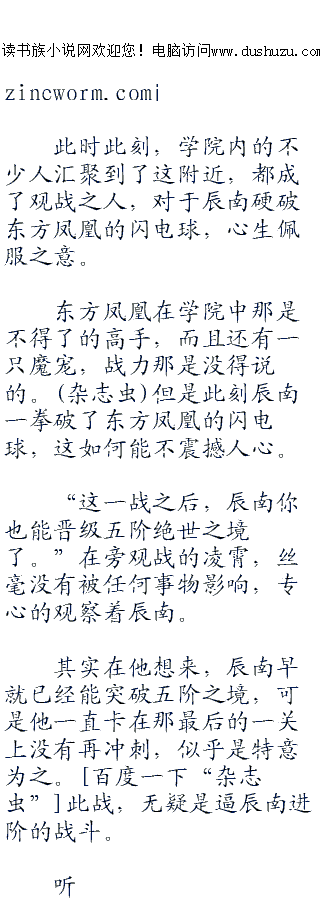 读书族小说网欢迎您！电脑访问www.dushuzu.com
zincworm.com|
此时此刻，学院内的不
少人汇聚到了这附近，都成
了观战之人，对于辰南硬破
东方凤凰的闪电球，心生佩
服之意。
东方凤凰在学院中那是
不得了的高手，而且还有一
只魔宠，战力那是没得说
的。(杂志虫)但是此刻辰南
一拳破了东方凤凰的闪电
球，这如何能不震撼人心。
“这一战之后，辰南你
也能晋级五阶绝世之境
了。”在旁观战的凌霄，丝
毫没有被任何事物影响，专
心的观察着辰南。
其实在他想来，辰南早
就已经能突破五阶之境，可
是他一直卡在那最后的一关
上没有再冲刺，似乎是特意
为之。[百度一下“杂志
虫”]此战，无疑是逼辰南进
阶的战斗。
听